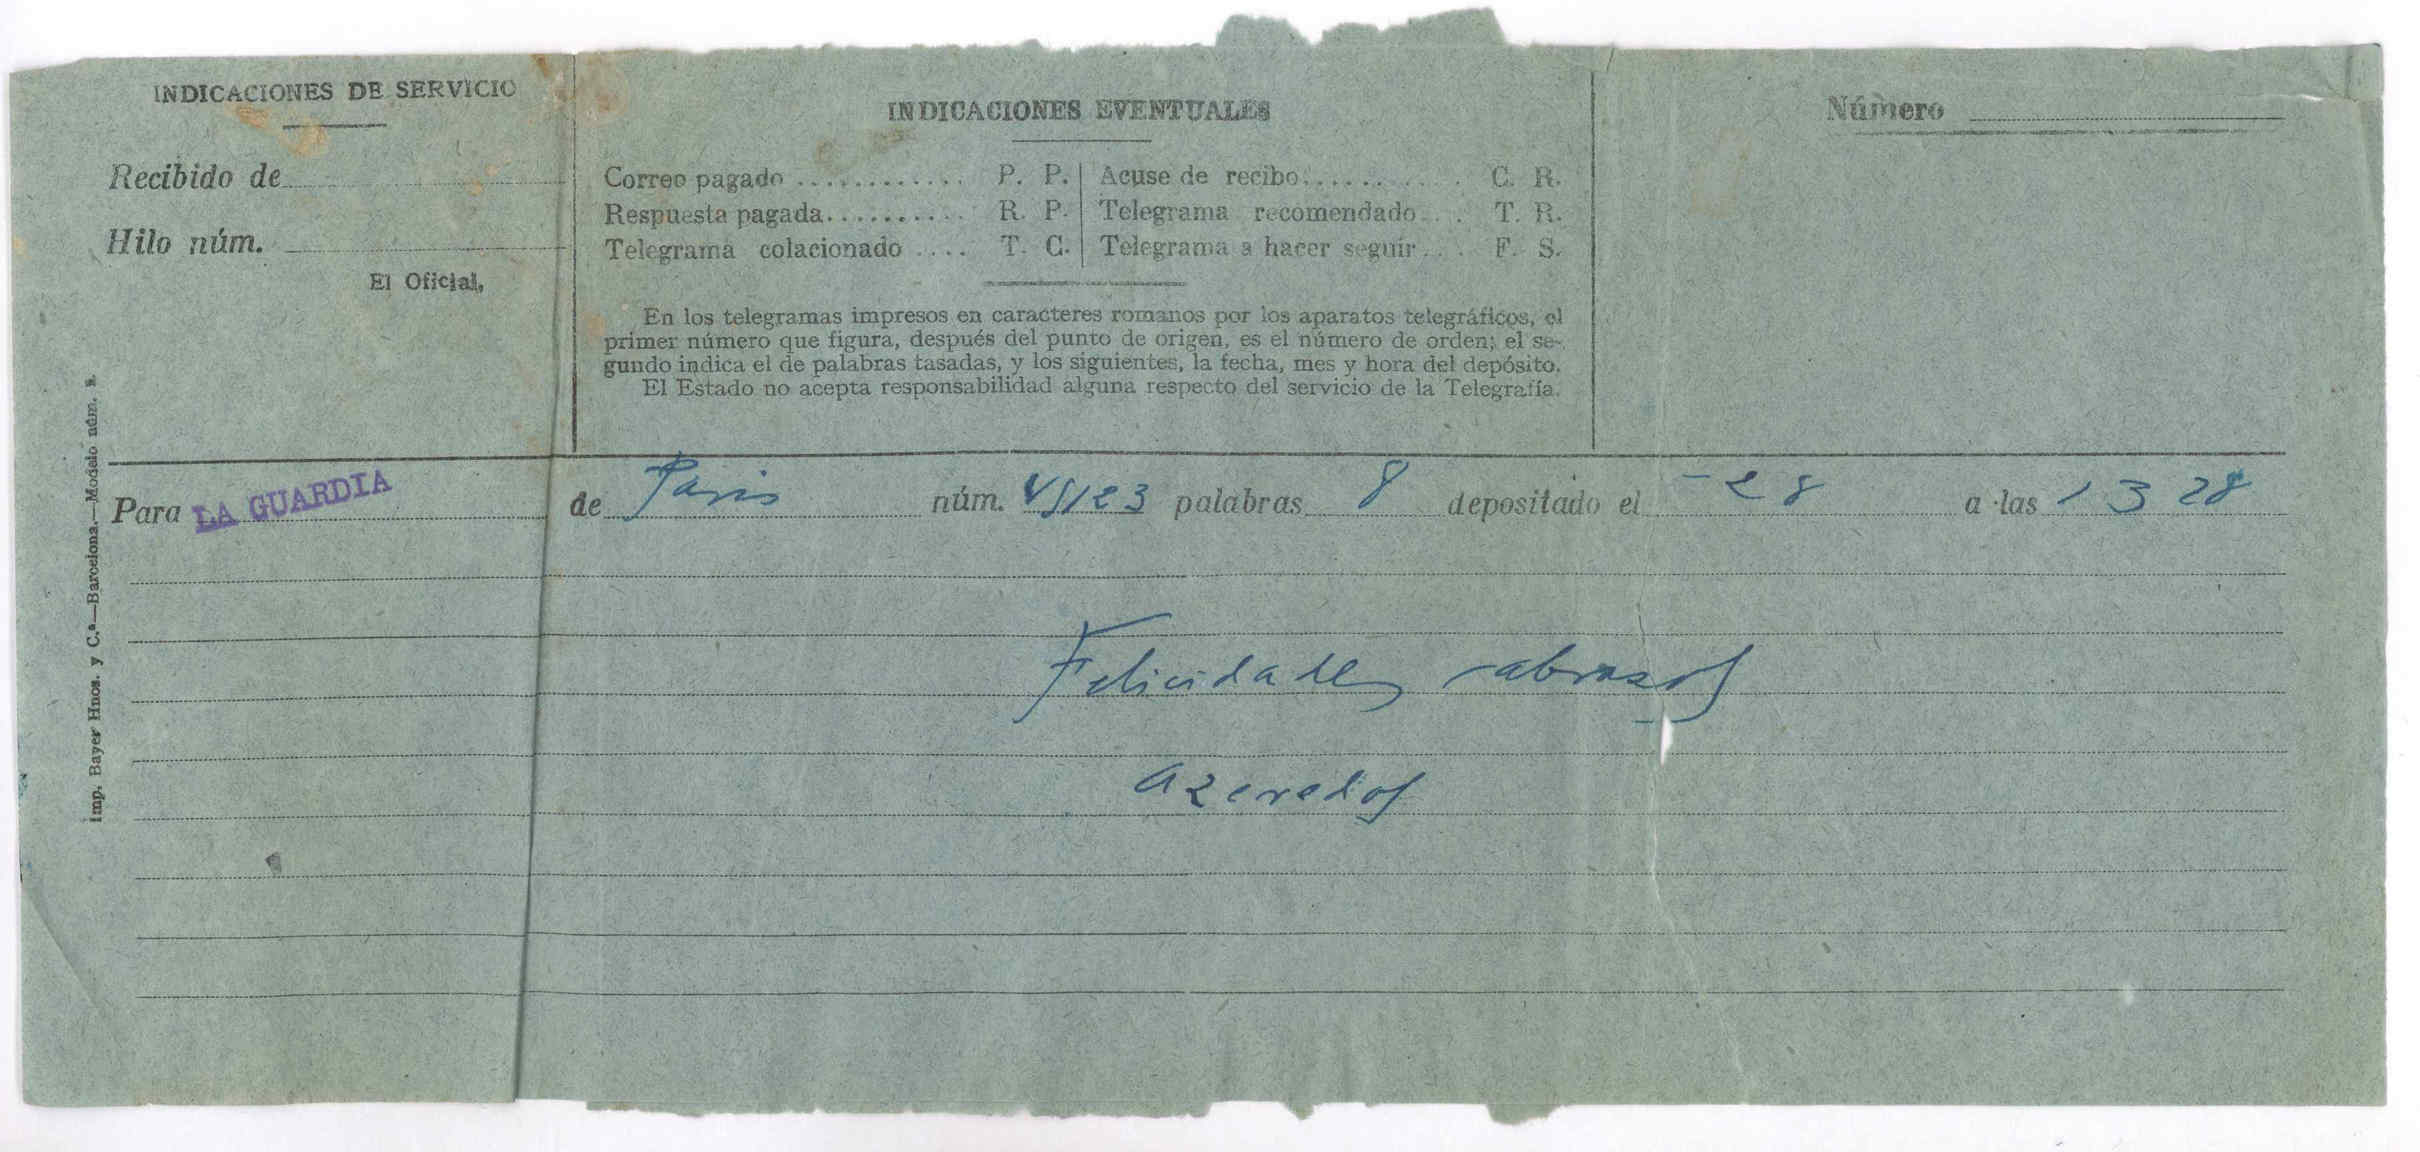 INDICACIONES DE SERVICIO
Recibido de
Hilo núm.
El Oficial,
INDICACIONES EVENTUALES
Correo pagado ............ P. P. | Acuse de recibo........... C. R.
Respuesta pagada.......... R. P. | Telegrama recomendado... T. R.
Telegrama colacionado .... T. C. | Telegrama a hacer seguir... F. S.
En los telegramas impresos en caracteres romanos por los aparatos telegráficos, el
primer número que figura, después del punto de origen, es el número de orden; el se-
gundo indica el de palabras tasadas, y los siguientes, la fecha, mes y hora del depósito.
El Estado no acepta responsabilidad alguna respecto del servicio de la Telegrafía.
Número
Para LA GUARDIA de Paris núm. palabras 8 depositado el 28 a las 13 28
Felicidades abrazos
azeredos
Imp. Bayer Hnos. y C.ª—Barcelona.—Modelo núm.